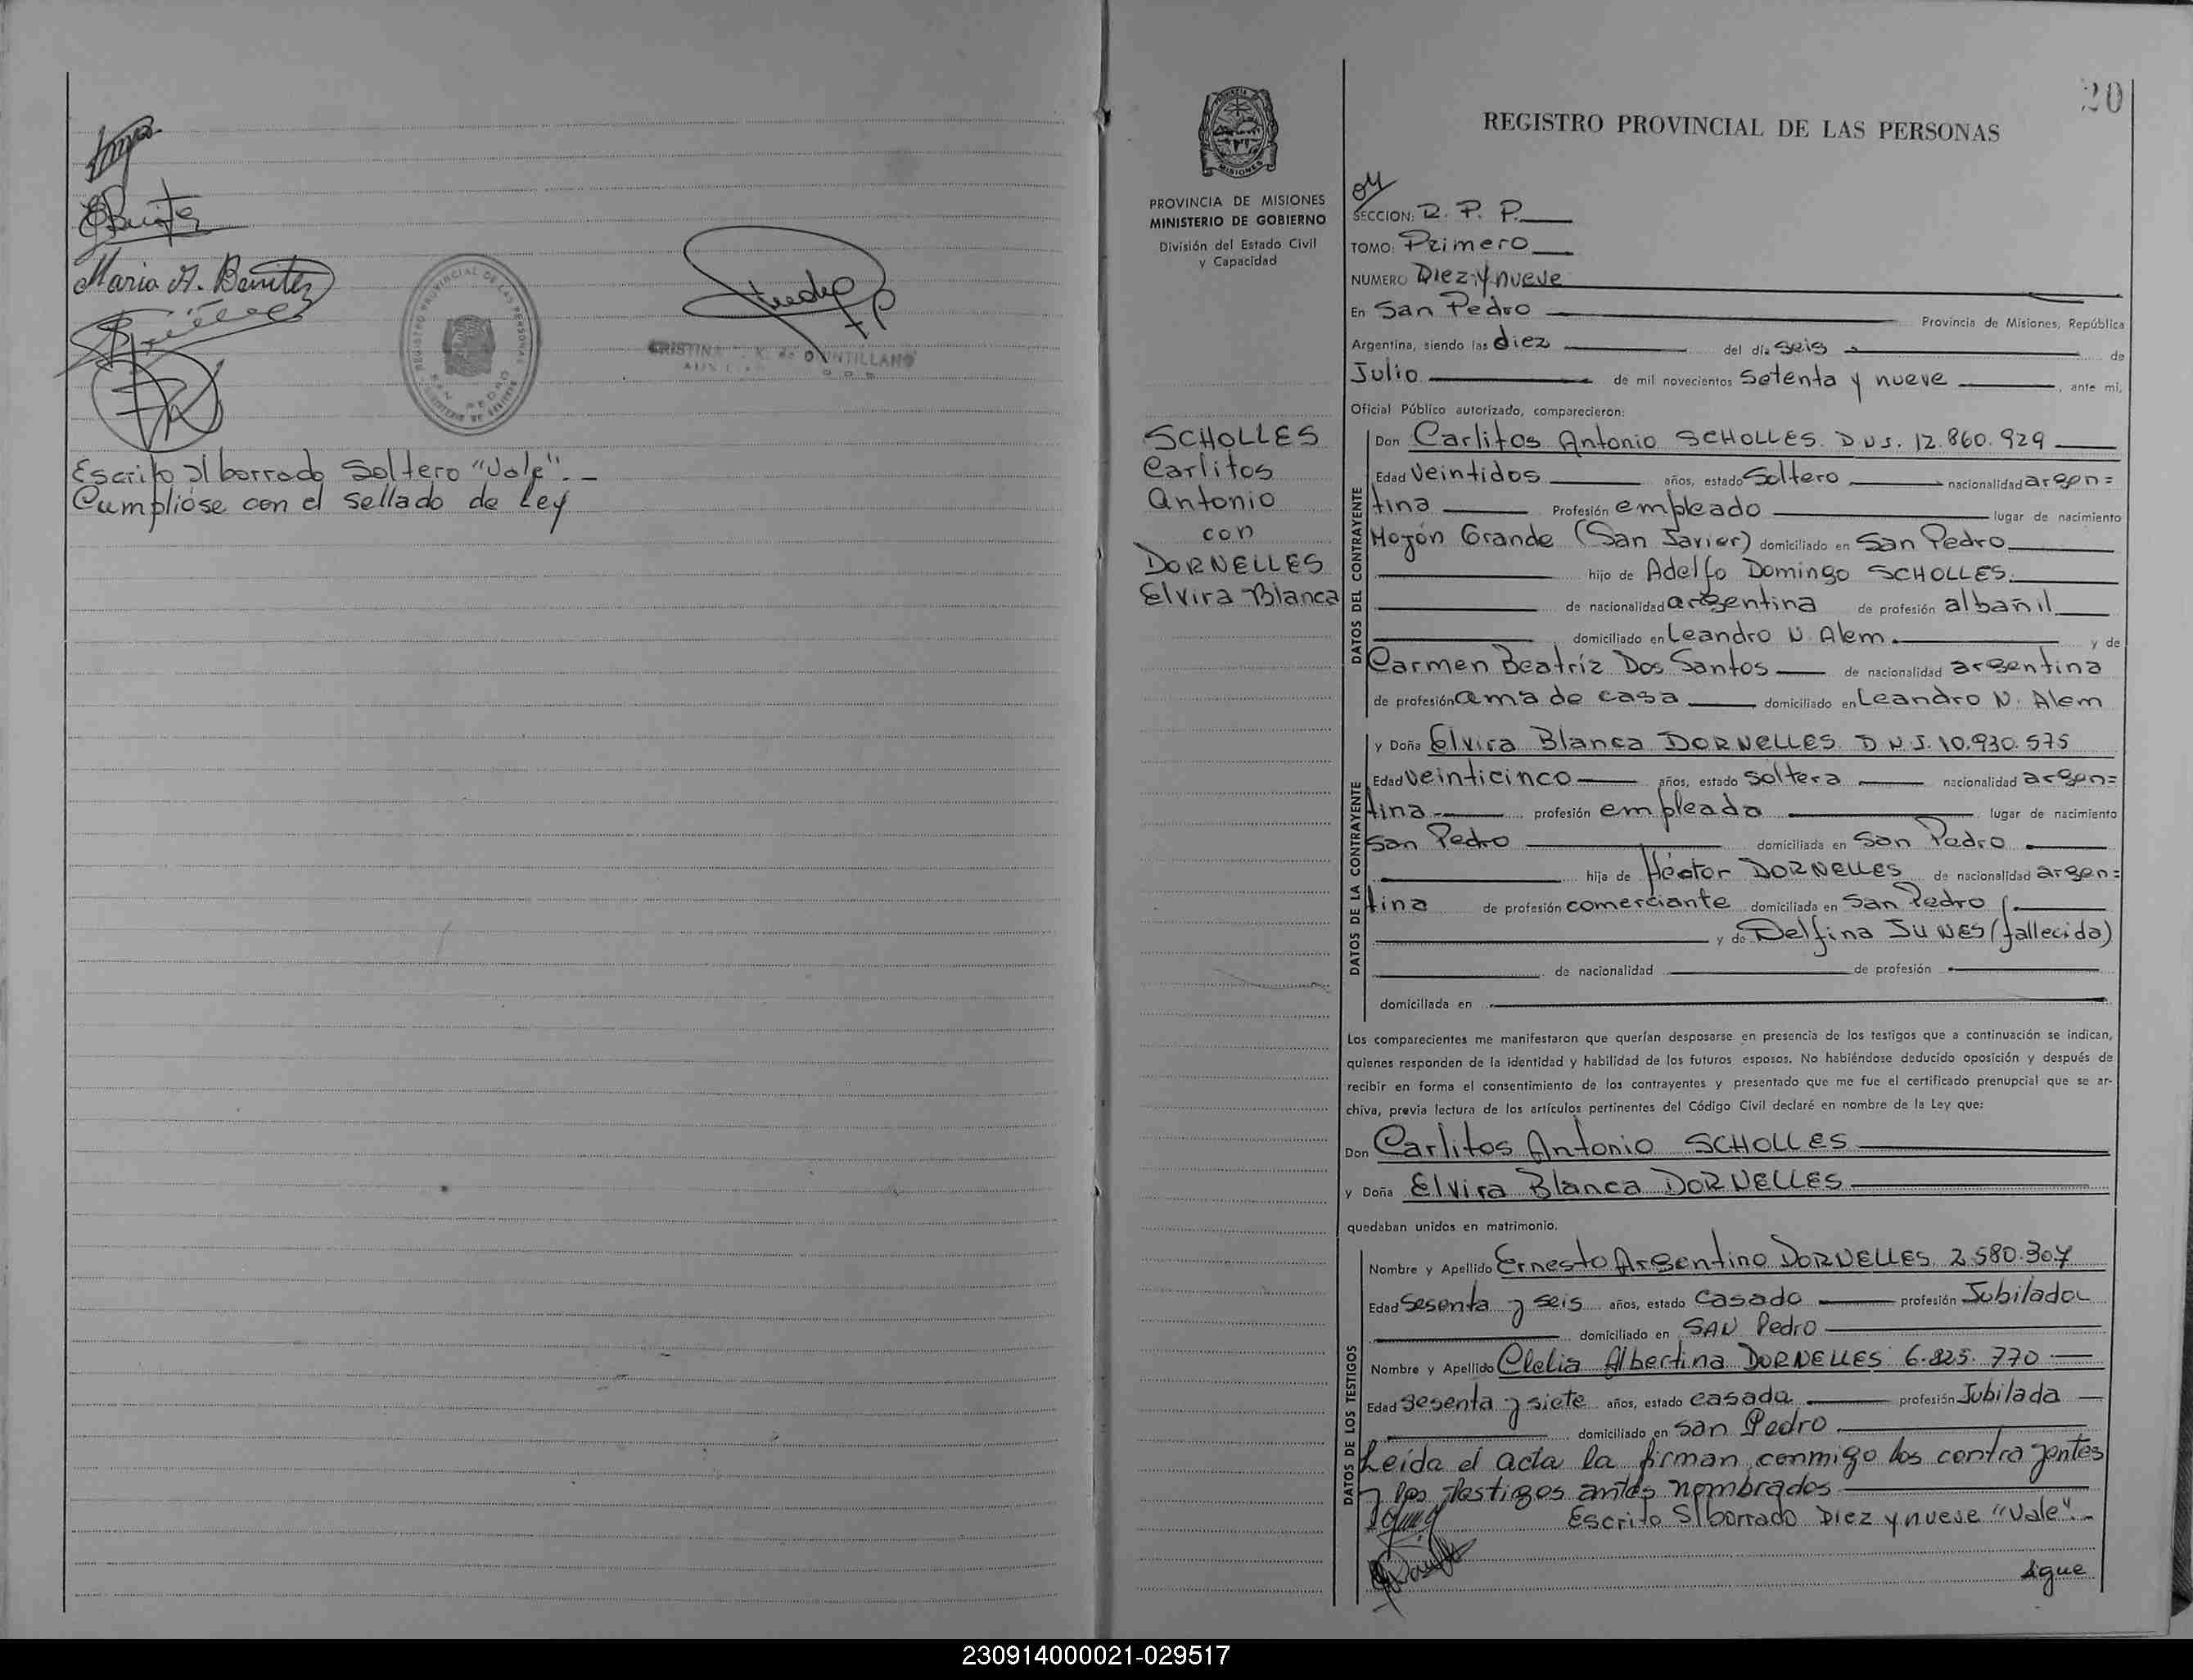 E Benitez
Maria A. Benitez
REGISTRO PROVINCIAL DE LAS PERSONAS
SAN PEDRO
CRISTINA K. de QUINTILLANO
Escrito s/borrado Soltero "Vale".-
Cumplióse con el sellado de Ley
20
PROVINCIA DE MISIONES
MINISTERIO DE GOBIERNO
División del Estado Civil
y Capacidad
SCHOLLES
Carlitos
Antonio
con
DORNELLES
Elvira Blanca
REGISTRO PROVINCIAL DE LAS PERSONAS
SECCION: R. P. P.
TOMO: Primero
NUMERO Diez y nueve
En San Pedro Provincia de Misiones, República
Argentina, siendo las diez del día seis de
Julio de mil novecientos setenta y nueve, ante mí,
Oficial Público autorizado, comparecieron:
DATOS DEL CONTRAYENTE
Don Carlitos Antonio SCHOLLES. D.N.I. 12.860.929
Edad Veintidos años, estado Soltero nacionalidad argen=
tina Profesión empleado lugar de nacimiento
Mojón Grande (San Javier) domiciliado en San Pedro
hijo de Adelfo Domingo SCHOLLES.
de nacionalidad argentina de profesión albañil
domiciliado en Leandro N. Alem. y de
Carmen Beatríz Dos Santos de nacionalidad argentina
de profesión ama de casa domiciliado en Leandro N. Alem
DATOS DE LA CONTRAYENTE
y Doña Elvira Blanca DORNELLES D.N.I. 10.930.575
Edad veinticinco años, estado soltera nacionalidad argen=
tina profesión empleada lugar de nacimiento
San Pedro domiciliada en San Pedro
hija de Héctor DORNELLES de nacionalidad argen=
tina de profesión comerciante domiciliada en San Pedro
y de Delfina JUNES (fallecida)
de nacionalidad de profesión
domiciliada en
Los comparecientes me manifestaron que querían desposarse en presencia de los testigos que a continuación se indican,
quienes responden de la identidad y habilidad de los futuros esposos. No habiéndose deducido oposición y después de
recibir en forma el consentimiento de los contrayentes y presentado que me fue el certificado prenupcial que se ar-
chiva, previa lectura de los artículos pertinentes del Código Civil declaré en nombre de la Ley que:
Don Carlitos Antonio SCHOLLES
y Doña Elvira Blanca DORNELLES
quedaban unidos en matrimonio.
DATOS DE LOS TESTIGOS
Nombre y Apellido Ernesto Argentino DORNELLES. 2.580.307
Edad Sesenta y seis años, estado casado profesión Jubilado
domiciliado en SAN Pedro
Nombre y Apellido Clelia Albertina DORNELLES 6.825.770
Edad Sesenta y siete años, estado casada profesión Jubilada
domiciliado en San Pedro
Leída el acta la firman conmigo los contrayentes
y los testigos antes nombrados
Escrito S/borrado Diez y nueve "Vale".-
sigue
230914000021-029517